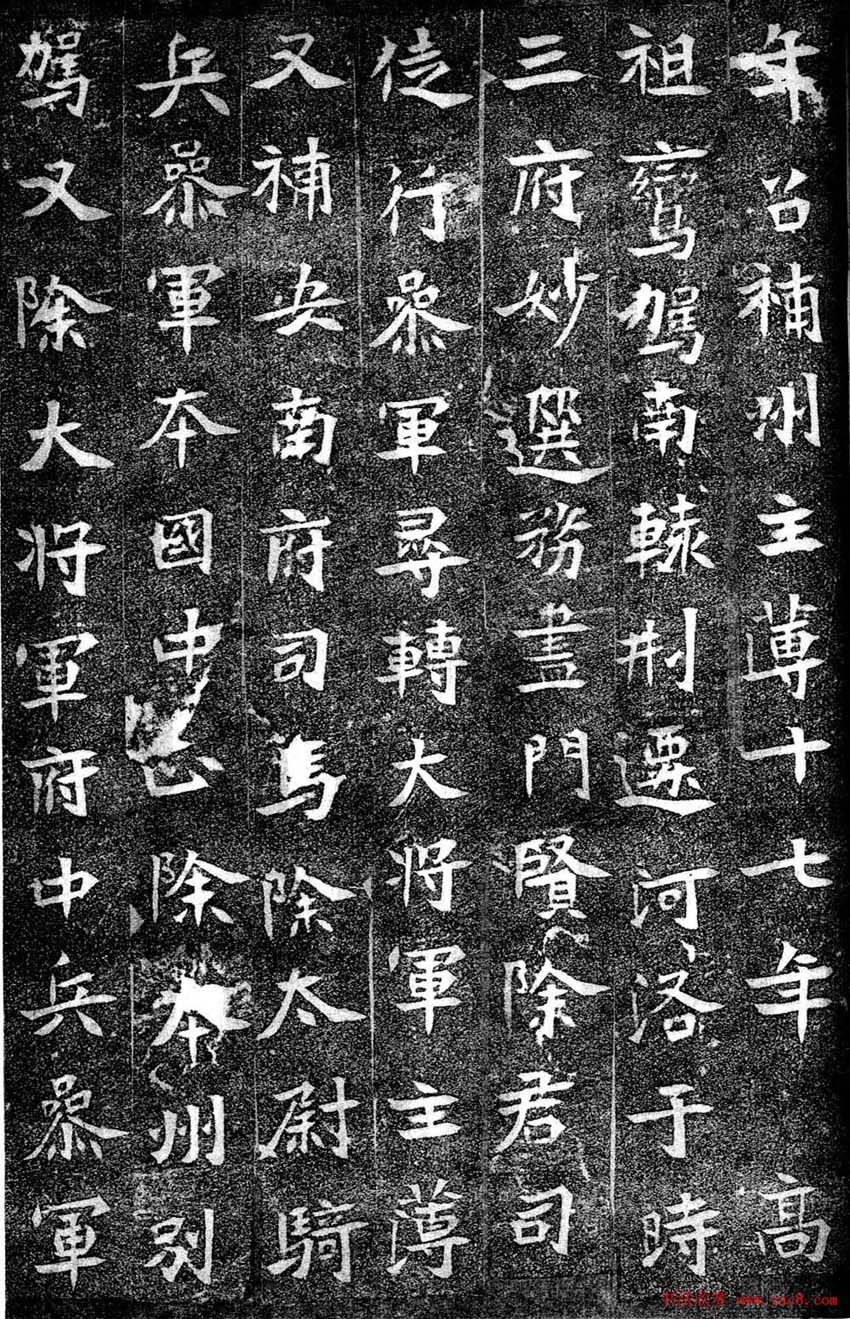 年召補州主薄十七年 高
祖鸞駕南轅刱遷河洛于時
三府妙選務盡門賢除君司
徒行叅軍尋轉大將軍主薄
又補安南府司馬除太尉騎
兵叅軍本國中正除本州別
駕又除大將軍府中兵叅軍
书法欣赏 www.yac8.com